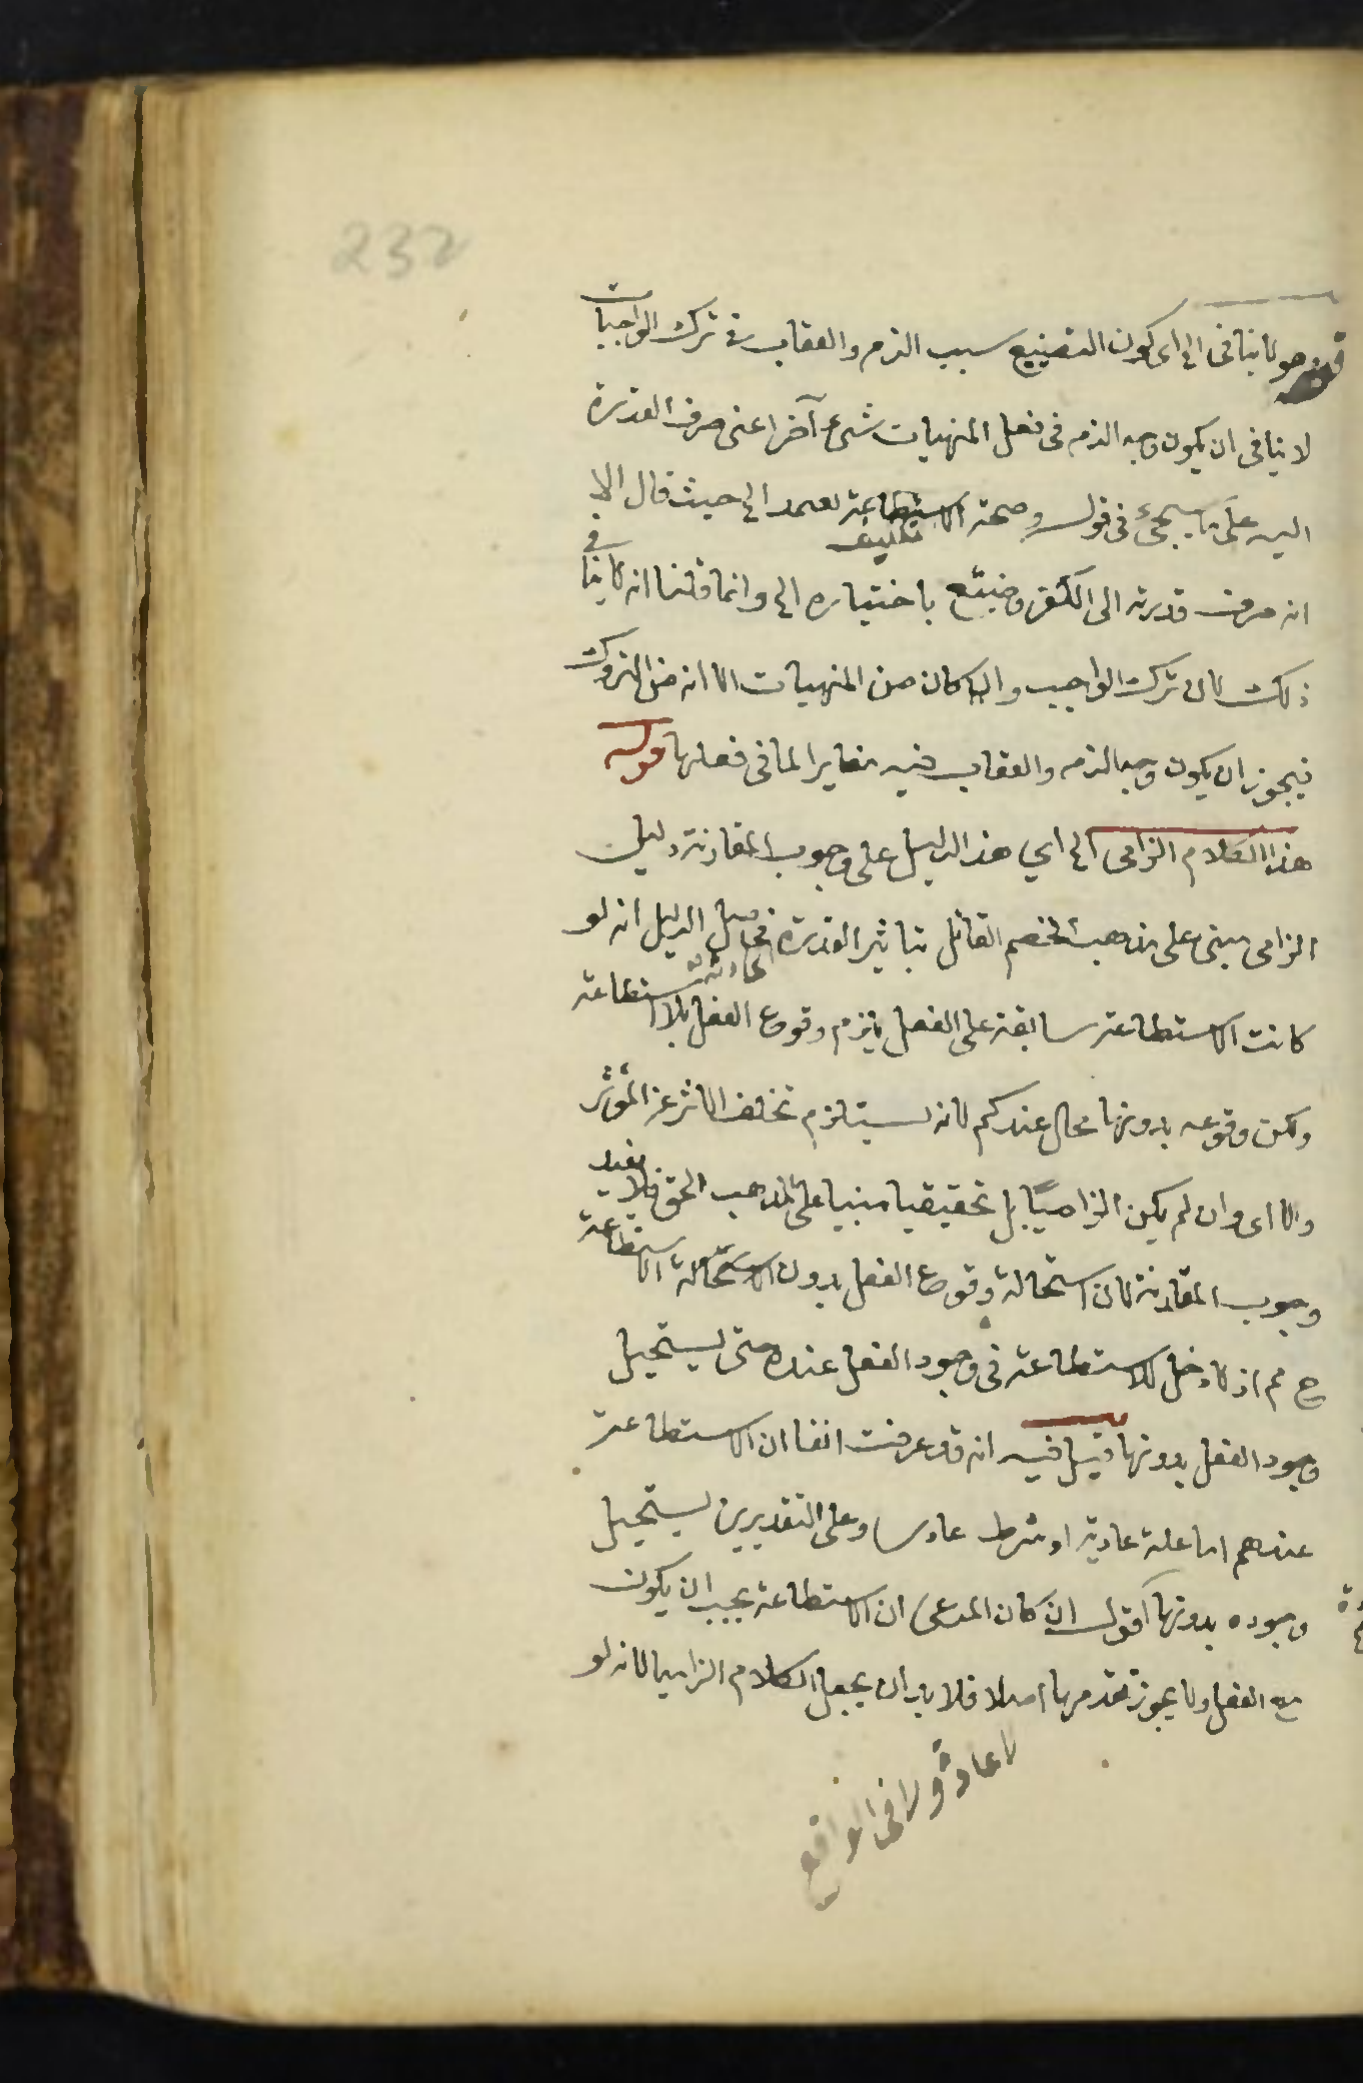 232
قوله وهو لا ينافى الخ اى كون التضييع سبب الذم والعقاب فى ترك الواجبات
لا ينافى ان يكون وجه الذم فى فعل المنهيات شىء آخر اعنى صرف القدرة
اليه على ما سيجىء فى قوله وصحة تكليف الاستطاعة تعتمد الخ حيث قال الا
انه صرف قدرته الى الكفر وضيع باختياره الخ وانما قلنا انه لا ينافى
ذلك لان ترك الواجب وان كان من المنهيات الا انه من التروك
فيجوز ان يكون وجه الذم والعقاب فيه مغايرا لما فى فعلها قوله
هذا الكلام الزامى الخ اي هذا الدليل على وجوب المقارنة دليل
الزامى مبنى على مذهب الخصم القائل بتاثير القدرة الحادثة فحاصل الدليل انه لو
كانت الاستطاعة سابقة على الفعل يلزم وقوع الفعل بلا استطاعة
ولكن وقوعه بدونها محال عندكم لانه يستلزم تخلف الاثر عن المؤثر
والا اى وان لم يكن الزاميًا بل تحقيقيا مبنيا على المذهب الحق فلا يفيد
وجوب المقارنة لان استحالة وقوع الفعل بدون الاستحالة الاستطاعة
ح مم اذ لا دخل للاستطاعة فى وجود الفعل عنده حتى يستحيل
وجود الفعل بدونها قيل فيه انه قد عرفت انفا ان الاستطاعة
عندهم اما علة عادية او شرط عادى وعلى التقديرين يستحيل
وجوده بدونها اقول ان كان المدعى ان الاستطاعة يجب ان يكون
مع الفعل ولا يجوز تقدمها اصلا فلا بد ان يجعل الكلام الزاميا لانه لو
لا عادة ولا فى الواقع